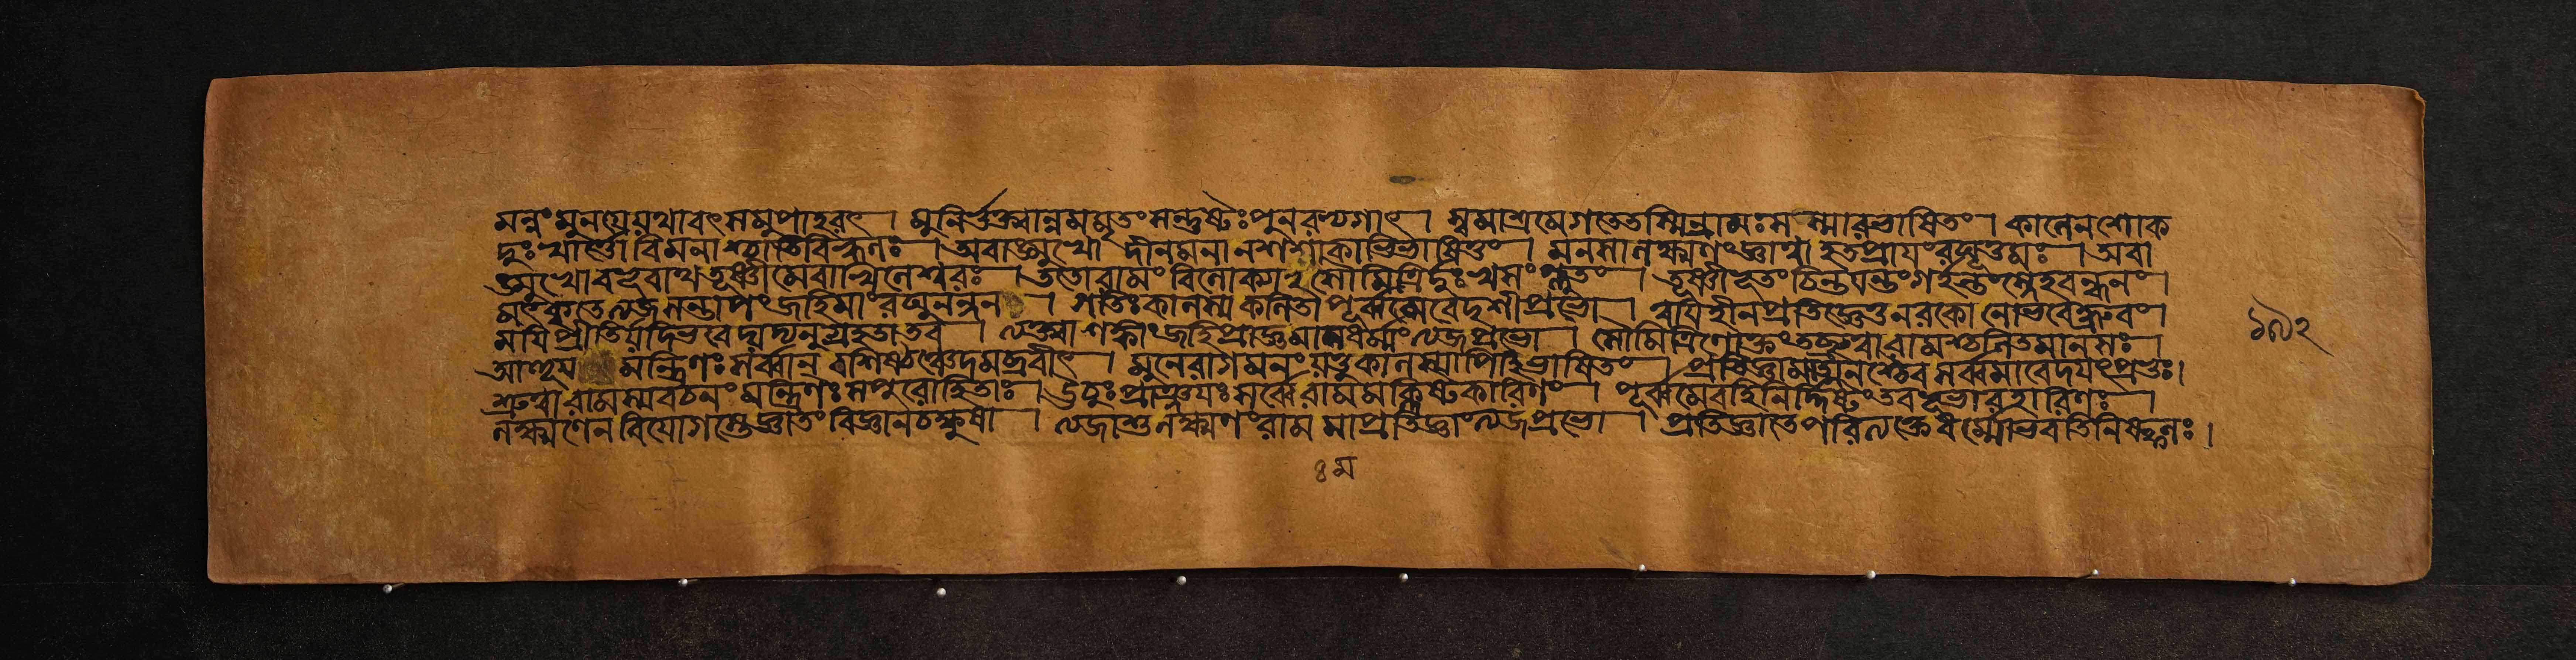 মন্নং মুনয়ে যথাবৎ সমুপাহরৎ। মুনির্ভুক্ত্বান্নমমৃতং সন্তুষ্টঃ পুনরভ্যগাৎ। স্বমাশ্রমে গতে তস্মিন্ রামঃ সস্মার ভাষিতং। কালেন শোক
দুঃখার্ত্তো বিমনাশ্চাতিবিহ্বলঃ। অবাঙ্মুখো দীনমনা ন শশাকাভিভাষিতুং। মনসা লক্ষ্মণং জ্ঞাত্বা হতপ্রায়ং রঘূত্তমঃ। অবা
ঙ্মুখো বভূবাথ তূষ্ণীমেবাখিলেশ্বরঃ। ততো রামং বিলোক্যাহ সৌমিত্রির্দুঃখসংপ্লুতং। তূষ্ণীং ভূতং চিন্তয়ন্তং গর্হন্তং স্নেহবন্ধনং।
মৎকৃতে ত্যজ সন্তাপং জহি মাং রঘুনন্দন। গতিঃ কালস্য কলিতা পূর্ব্বমেবেদৃশী প্রভো। ত্বয়ি হীনপ্রতিজ্ঞে তু নরকো মে ভবেদ্ধ্রুবং।
ময়ি প্রীতির্যদি ভবেদ্যদ্যনুগ্রহতা তব। ত্যক্ত্বা শঙ্কাং জহি প্রাজ্ঞ মা মা ধর্ম্মং ত্যজ প্রভো। সৌমিত্রিণোক্তং তচ্ছ্রুত্বা রামশ্চলিতমানসঃ।
আহূয় মন্ত্রিণঃ সর্ব্বান্ বশিষ্ঠঞ্চেদমব্রবীৎ। মুনেরাগমনং যত্তু কালস্যাপি হি ভাষিতং। প্রতিজ্ঞামাত্মনশ্চৈব সর্ব্বমাবেদয়ৎ প্রভুঃ।
শ্রুত্বা রামস্য বচনং মন্ত্রিণঃ সপুরোহিতাঃ। ঊচুঃ প্রাঞ্জলয়ঃ সর্ব্বে রামমক্লিষ্টকারিণং। পূর্ব্বমেব হি নির্দ্দিষ্টং তব ভূভারহারিণঃ।
লক্ষ্মণেন বিয়োগস্তে জ্ঞাতং বিজ্ঞানচক্ষুষা। ত্যজাশু লক্ষ্মণং রাম মা প্রতিজ্ঞাং ত্যজ প্রভো। প্রতিজ্ঞাতে পরিত্যক্তে ধর্ম্মো ভবতি নিষ্ফলঃ।